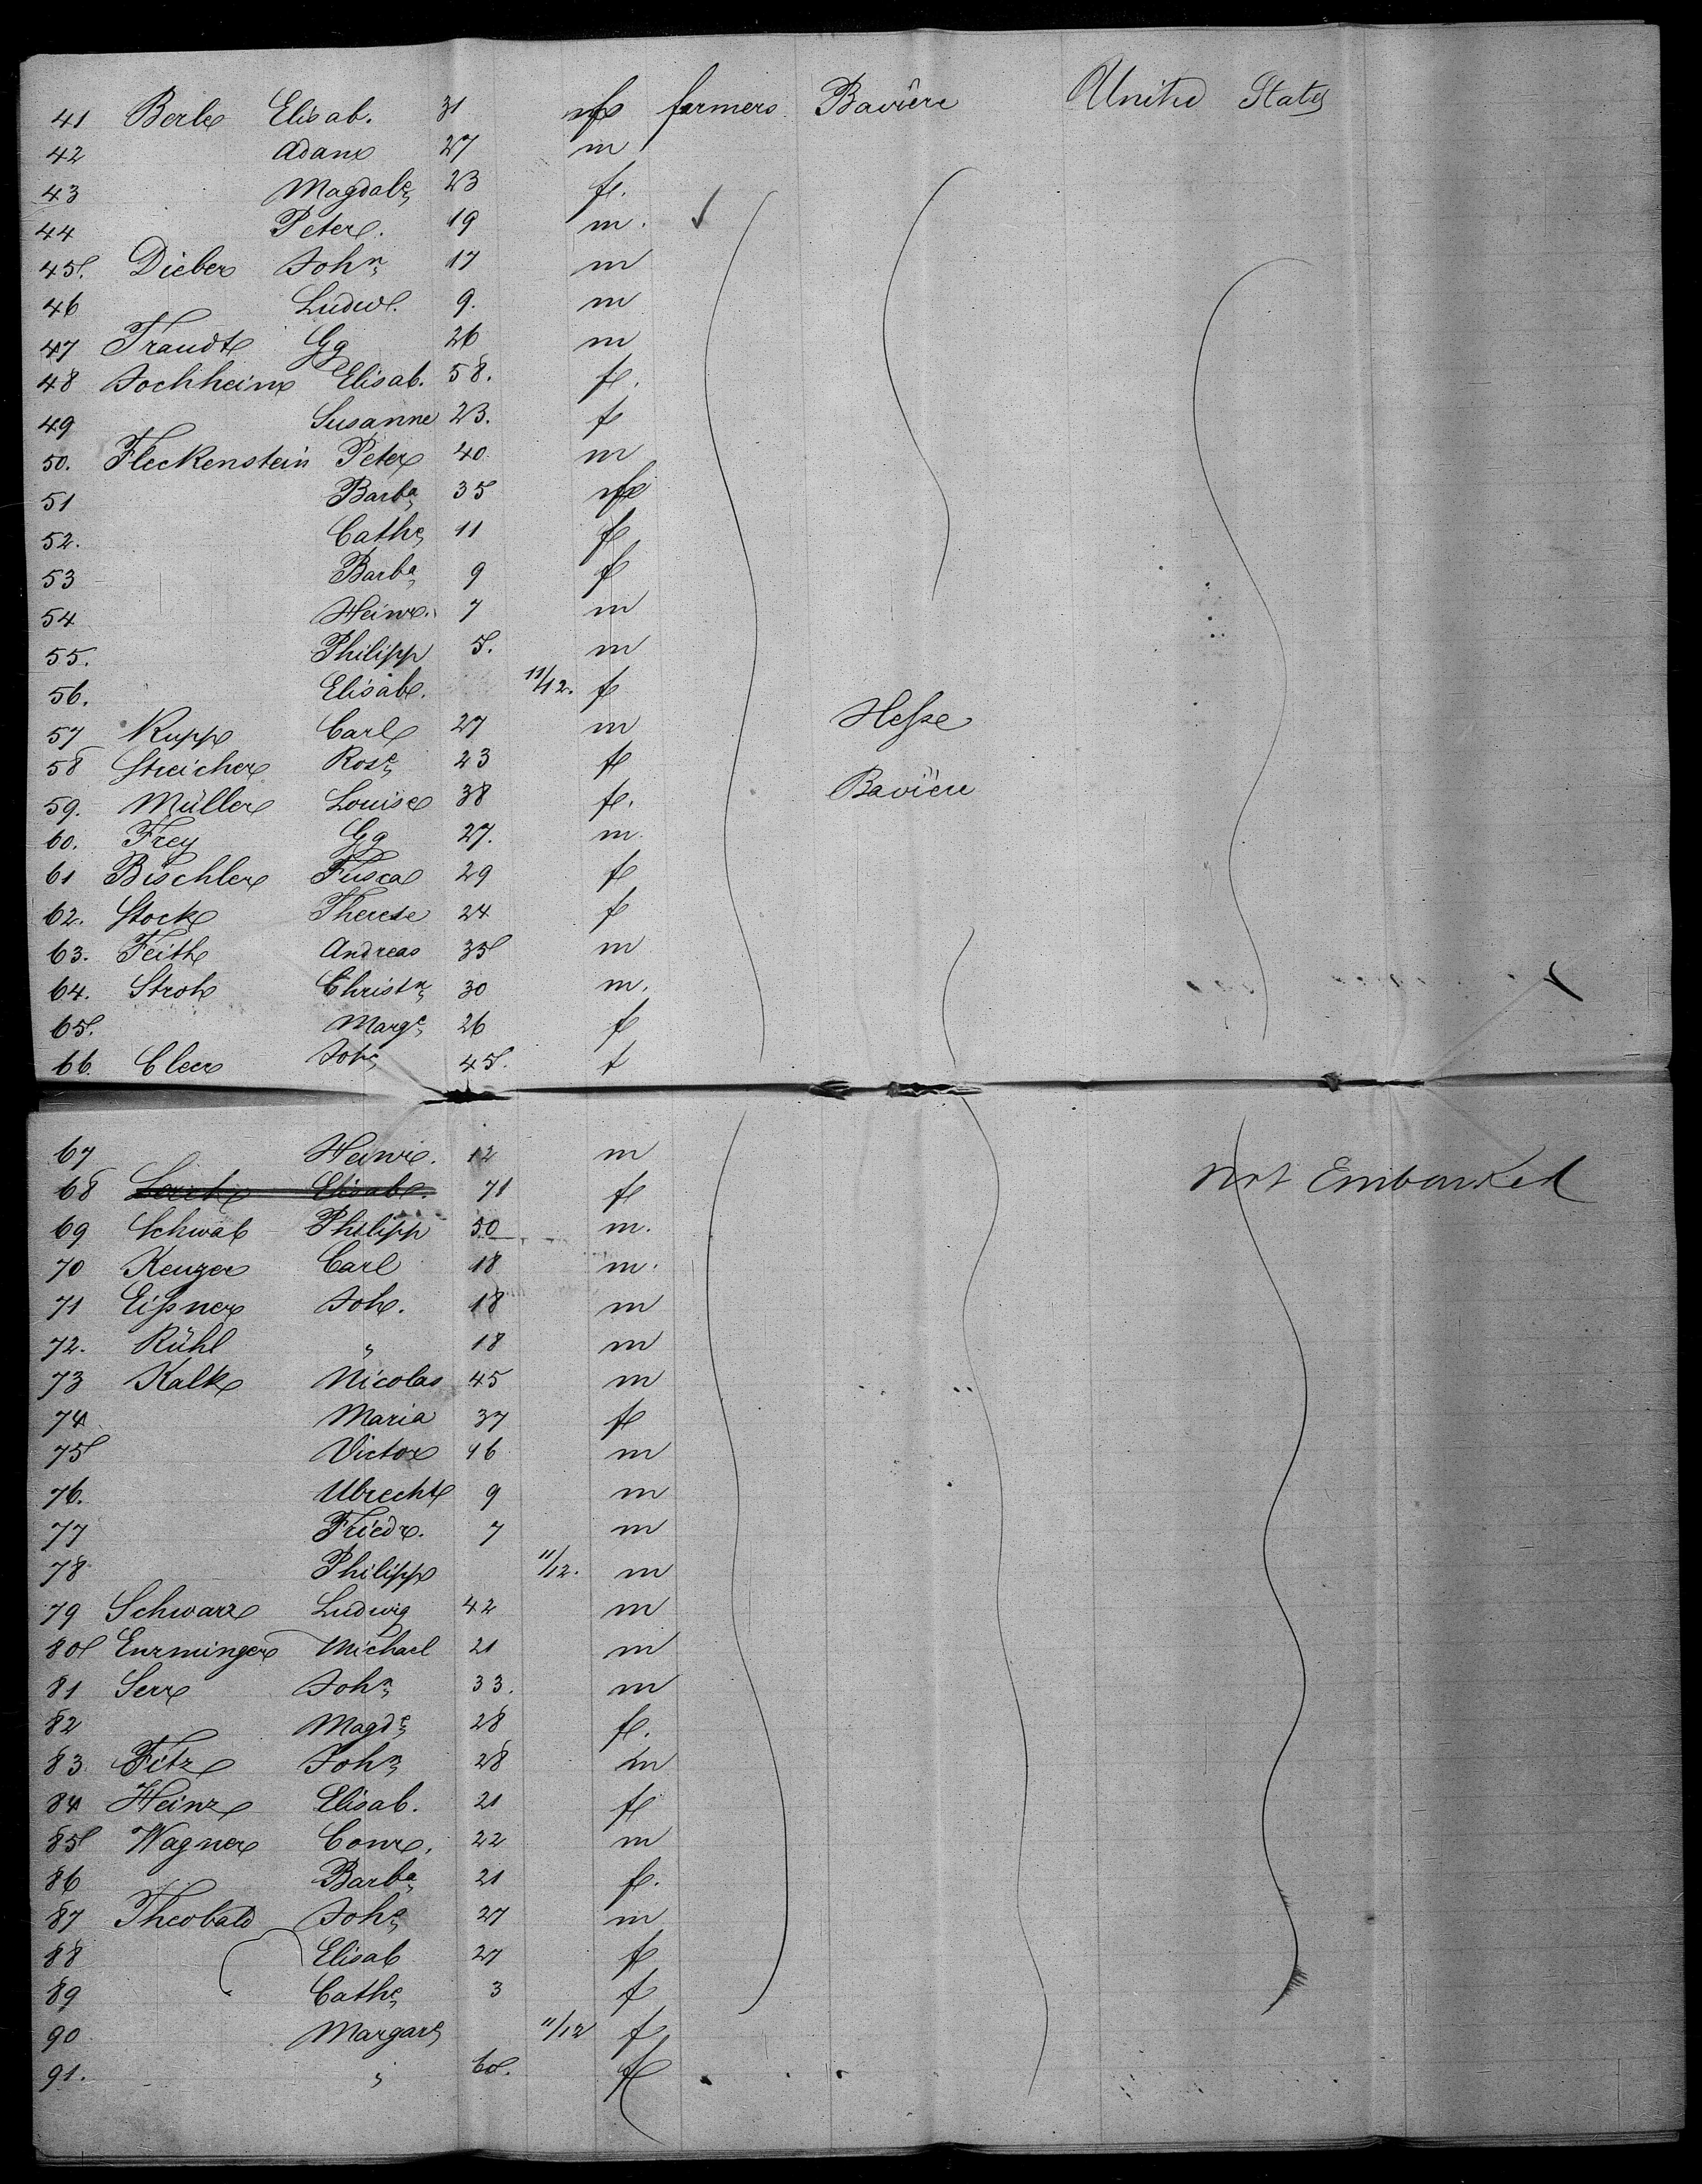 41 Berle Elisab. 31 f farmers Bavière United States
42 Adam 27 m
43 Magdale 23 f.
44 Peter. 19 m.
45. Dieber John 17 m
46 Ludw. 9. m
47 Traudt Gg 26 m
48 Jochheim Elisab. 58. f.
49 Susanne 23. f
50. Fleckenstein Peter 40 m
51 Barba 35 f
52. Cathe 11 f
53 Barba 9 f
54 Heinr. 7 m
55. Philipp 5. m
56. Elisab. 11/12. f
57 Rupp Carl 27 m Hesse
58 Streicher Rose 23 f
59. Müller Louise 38 f. Bavière
60. Frey Gg 27. m.
61 Bischler Fusca 29 f
62. Stock Therese 24 f
63. Feith Andreas 35 m
64. Stroh Christn 30 m.
65. Marge 26 f
66. Cleer Johe 45. f
67 Heinr. 12 m
68 Elisab. 71 f Not Embarked
69 Schwab Philipp 50 m.
70 Keuzer Carl 18 m.
71 Eissner Joh. 18 m
72. Rühl " 18 m
73 Kalk Nicolas 45 m
74 Maria 37 f
75 Victor 16 m
76. Ubrecht 9 m
77 Friedr. 7 m
78 Philipp 11/12. m
79 Schwarz Ludwig 42 m
80 Enrminger Michael 21 m
81 Serr John 33. m
82 Magde 28 f.
83. Fitz John 28 m
84 Heinz Elisab. 21 f
85 Wagner Conr. 22 m
86 Barba 21 f.
87 Theobald Johe 27 m
88 Elisab 27 f
89 Cathe 3 f
90 Margare 11/12 f
91. " 60. f